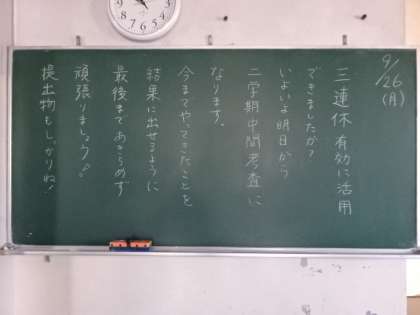 9/26
(月)
三連休 有効に活用
できましたか?
いよいよ明日から
二学期中間考査に
なります。
今までやってきたことを
結果に出せるように
最後まであきらめず
頑張りましょう。
提出物もしっかりね!